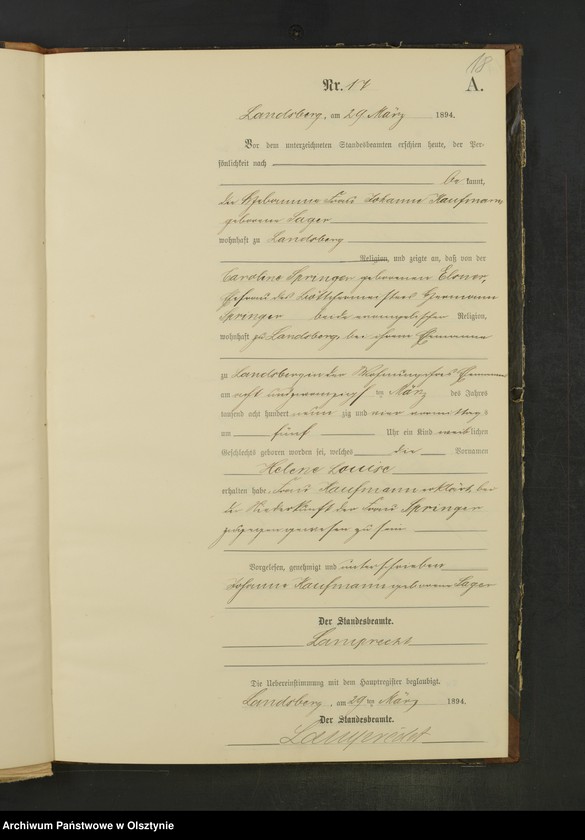 18.
Nr. 17
A.
Landsberg, am 29 März 1894.
Vor dem unterzeichneten Standesbeamten erschien heute, der Per-
sönlichkeit nach
be kannt,
die Hebamme Frau Johanne Kaufmann
geborene Sager
wohnhaft zu Landsberg
Religion, und zeigte an, daß von der
Caroline Springer geborenen Elsner,
Ehefrau des Böttchermeisters Hermann
Springer beide evangelischer Religion,
wohnhaft zu Landsberg, bei ihrem Ehemanne
zu Landsberg in der Wohnung ihres Ehemannes
am acht und zwanzigsten März des Jahres
tausend acht hundert neun zig und vier vormittags
um fünf Uhr ein Kind weiblichen
Geschlechts geboren worden sei, welches die Vornamen
Helene Louise
erhalten habe. Frau Kaufmann erklärt, bei
der Niederkunft der Frau Springer
zugegen gewesen zu sein
Vorgelesen, genehmigt und unterschrieben
Johanne Kaufmann geborene Sager
Der Standesbeamte.
Lamprecht
Die Uebereinstimmung mit dem Hauptregister beglaubigt.
Landsberg, am 29ten März 1894.
Der Standesbeamte.
Lamprecht
Archiwum Państwowe w Olsztynie